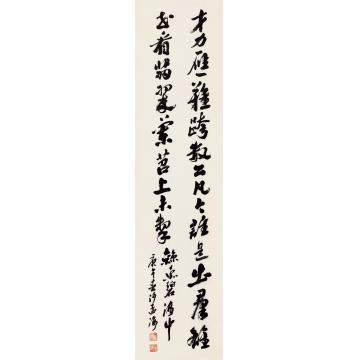 才力應難跨數公凡今誰是出群雄
或看翡翠蘭苕上未掣
鯨魚碧海中
庚午春沙孟海